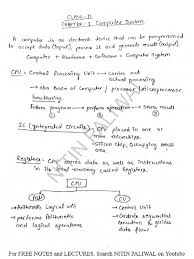 CLASS-11
CHAPTER-1 Computer System
A computer is an electronic device that can be programmed
to accept data (input), process it and generate result (output).
Computer = Hardware + Software = Computer System
CPU = Central Processing Unit → carries out
actual processing
→ aka brain of Computer / microprocessor.
functioning.
Fetches program → perform operation → Stores result
IC (Integrated Circuits) = CPU placed on one
or more microchips.
Silicon Chip, Computer,
Registers = CPU stores data as well as instructions
in its local memory called Registers.
CPU
ALU
CU
Arithmetic Logical unit
→ Control unit
→ performs Arithmetic
and logical operations
→ Controls sequential
execution & guides
data flow
NITIN PALIWAL
For FREE NOTES and LECTURES, Search NITIN PALIWAL on Youtube